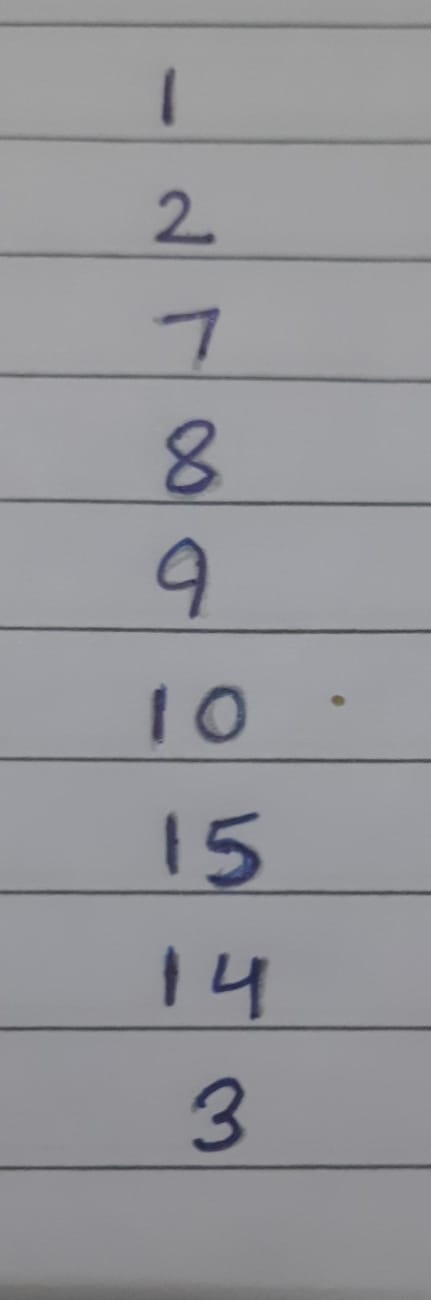 1
2
7
8
9
10
15
14
3